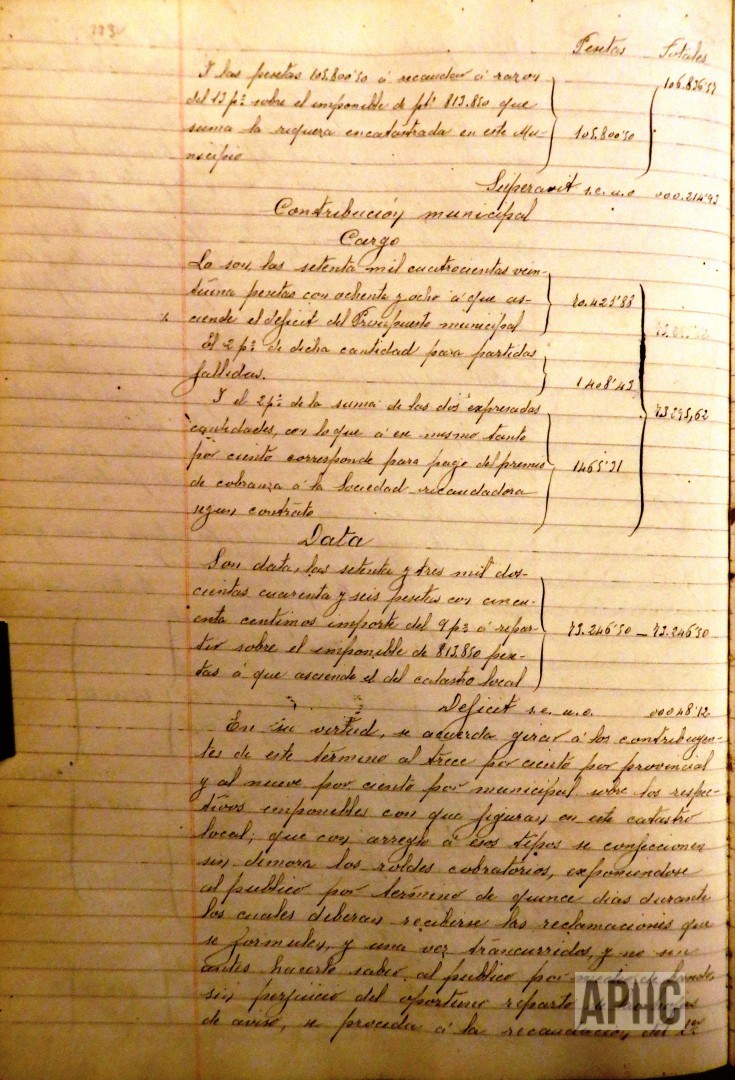 Pesetas Totales
Y las pesetas 105.800'50 á recaudar á razon
del 13 p% sobre el imponible de pts 813.850 que
suma la riqueza encatastrada en este Mu-
nicipio
105.800'50
106.836'57
Superavit s.e.u.o 000.214'93
Contribución municipal
Cargo
Lo son, las setenta mil cuatrocientas vein-
tiuna pesetas con ochenta y ocho á que as-
ciende el deficit del Presupuesto municipal
70.421'88
El 2 p% de dicha cantidad para partidas
fallidas.
1408'43
Y el 2 p% de la suma de las dos expresadas
cantidades, con lo que á ese mismo tanto
por ciento corresponde para pago del premio
de cobranza á la Sociedad recaudadora
segun contrato
1465'31
73295,62
Data
Son data, las setenta y tres mil dos-
cientas cuarenta y seis pesetas con cincu-
enta centimos importe del 9 p% á repar-
tir sobre el imponible de 813.850 pese-
tas á que asciende el del catastro local
73.246'50 — 73.246'50
Deficit s.e.u.o. 00048'12
En su virtud, se acuerda girar á los contribuyen-
tes de este término al trece por ciento por provincial
y al nueve por ciento por municipal sobre los respec-
tivos imponibles con que figuran en este catastro
local; que con arreglo á esos tipos se confeccionen
sin demora los roldes cobratorios, exponiendose
al publico por termino de quince dias durante
los cuales deberan recibirse las reclamaciones que
se formulen, y una vez trancurridos, y no sin
antes hacerlo saber al publico por
sin perjuicio del oportuno reparto
de aviso, se proceda á la recaudación del 1er
APHC